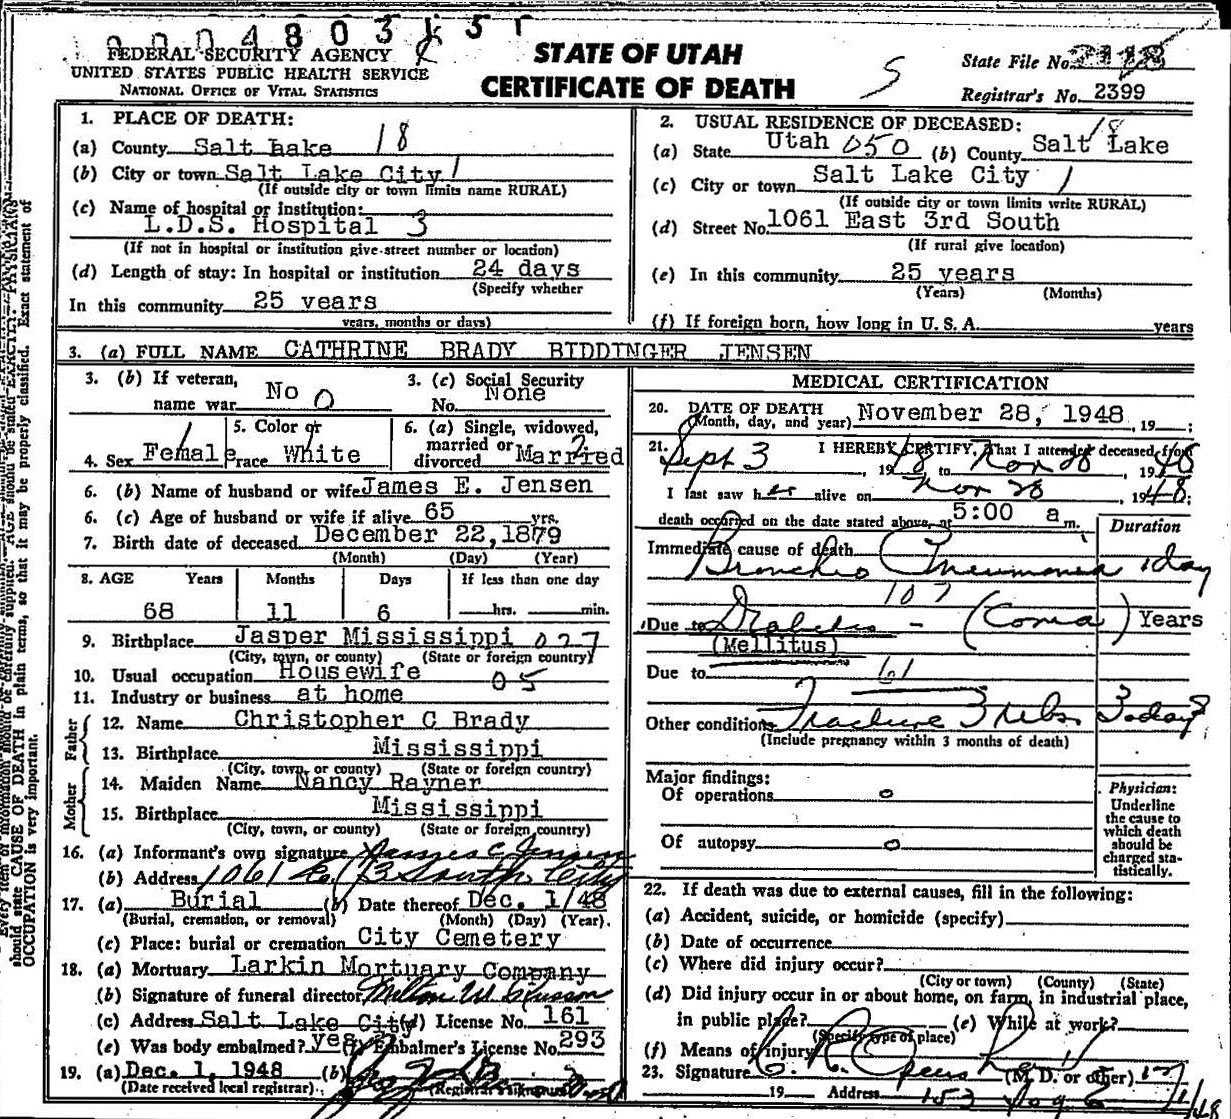 0004803151
FEDERAL SECURITY AGENCY
UNITED STATES PUBLIC HEALTH SERVICE
NATIONAL OFFICE OF VITAL STATISTICS
STATE OF UTAH
CERTIFICATE OF DEATH
S
State File No. 2118
Registrar's No. 2399
1. PLACE OF DEATH:
(a) County Salt Lake 18
(b) City or town Salt Lake City 1
(If outside city or town limits name RURAL)
(c) Name of hospital or institution:
L.D.S. Hospital 3
(If not in hospital or institution give street number or location)
(d) Length of stay: In hospital or institution 24 days
(Specify whether
In this community 25 years
years, months or days)
2. USUAL RESIDENCE OF DECEASED:
(a) State Utah 050 (b) County Salt Lake 18
(c) City or town Salt Lake City 1
(If outside city or town limits write RURAL)
(d) Street No. 1061 East 3rd South
(If rural give location)
(e) In this community 25 years
(Years) (Months)
(f) If foreign born, how long in U. S. A. years
3. (a) FULL NAME CATHRINE BRADY BIDDINGER JENSEN
3. (b) If veteran, name war No 0
3. (c) Social Security No. None
4. Sex Female 1
5. Color or race White 1
6. (a) Single, widowed, married or divorced Married 2
6. (b) Name of husband or wife James E. Jensen
6. (c) Age of husband or wife if alive 65 yrs.
7. Birth date of deceased December 22, 1879
(Month) (Day) (Year)
8. AGE Years Months Days If less than one day
68 11 6 hrs. min.
9. Birthplace Jasper Mississippi 027
(City, town, or county) (State or foreign country)
10. Usual occupation Housewife 05
11. Industry or business at home
Father
12. Name Christopher C Brady
13. Birthplace Mississippi
(City, town, or county) (State or foreign country)
Mother
14. Maiden Name Nancy Rayner
15. Birthplace Mississippi
(City, town, or county) (State or foreign country)
16. (a) Informant's own signature James E Jensen
(b) Address 1061 Ea 3 South City
17. (a) Burial (b) Date thereof Dec. 1/48
(Burial, cremation, or removal) (Month) (Day) (Year)
(c) Place: burial or cremation City Cemetery
18. (a) Mortuary Larkin Mortuary Company
(b) Signature of funeral director Milton W
(c) Address Salt Lake City (d) License No. 161
(e) Was body embalmed? yes (f) Embalmer's License No. 293
19. (a) Dec. 1, 1948 (b)
(Date received local registrar) (Registrar's signature)
MEDICAL CERTIFICATION
20. DATE OF DEATH
(Month, day, and year) November 28, 1948, 19 ;
21. I HEREBY CERTIFY, That I attended deceased from
Sept 3, 1948 to Nov 28, 1948
I last saw her alive on Nov 28, 1948;
death occurred on the date stated above, at 5:00 a m. Duration
Immediate cause of death
Broncho Pneumonia 1 day
107
Due to Diabetes - (Coma) Years
(Mellitus)
Due to 61
Other conditions Fracture 3 ribs 3 days
(Include pregnancy within 3 months of death)
Major findings:
Of operations 0
Of autopsy 0
Physician:
Underline
the cause to
which death
should be
charged sta-
tistically.
22. If death was due to external causes, fill in the following:
(a) Accident, suicide, or homicide (specify)
(b) Date of occurrence
(c) Where did injury occur?
(City or town) (County) (State)
(d) Did injury occur in or about home, on farm, in industrial place,
in public place? (e) While at work?
(Specify type of place)
(f) Means of injury
23. Signature (M. D. or other)
19 Address
should state CAUSE OF DEATH in plain terms, so that it may be properly classified. Exact statement of
OCCUPATION is very important.